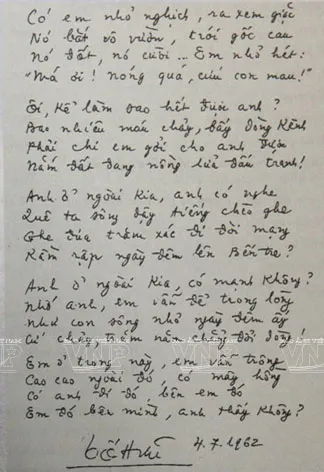 Có em nhỏ nghịch, ra xem giặc
Nó bắt vô vườn, trói gốc cau
Nó đốt, nó cười... Em nhỏ hét:
"Má ơi! nóng quá, cứu con mau!"
Ôi, kể làm sao hết được anh?
Bao nhiêu máu chảy, đầy dòng kênh
Phải chi em gởi cho anh được
Nắm đất đang nồng lửa đấu tranh!
Anh ở ngoài kia, anh có nghe
Quê ta sông dậy tiếng chèo ghe
Ghe đưa trăm xác đi đòi mạng
Rầm rập ngày đêm lên Bến Tre?
Anh ở ngoài kia, có mạnh không?
Nhớ anh, em vẫn để trong lòng
Như con sông nhỏ ngày đêm ấy
Cứ chảy, trăm năm chẳng đổi dòng!
Em ở trong này, em vẫn trông
Cao cao ngoài đó, có mây hồng
Có anh đi đó, bên em đó
Em đó bên mình, anh thấy không?
4.7.1962
Tố Hữu
VNP